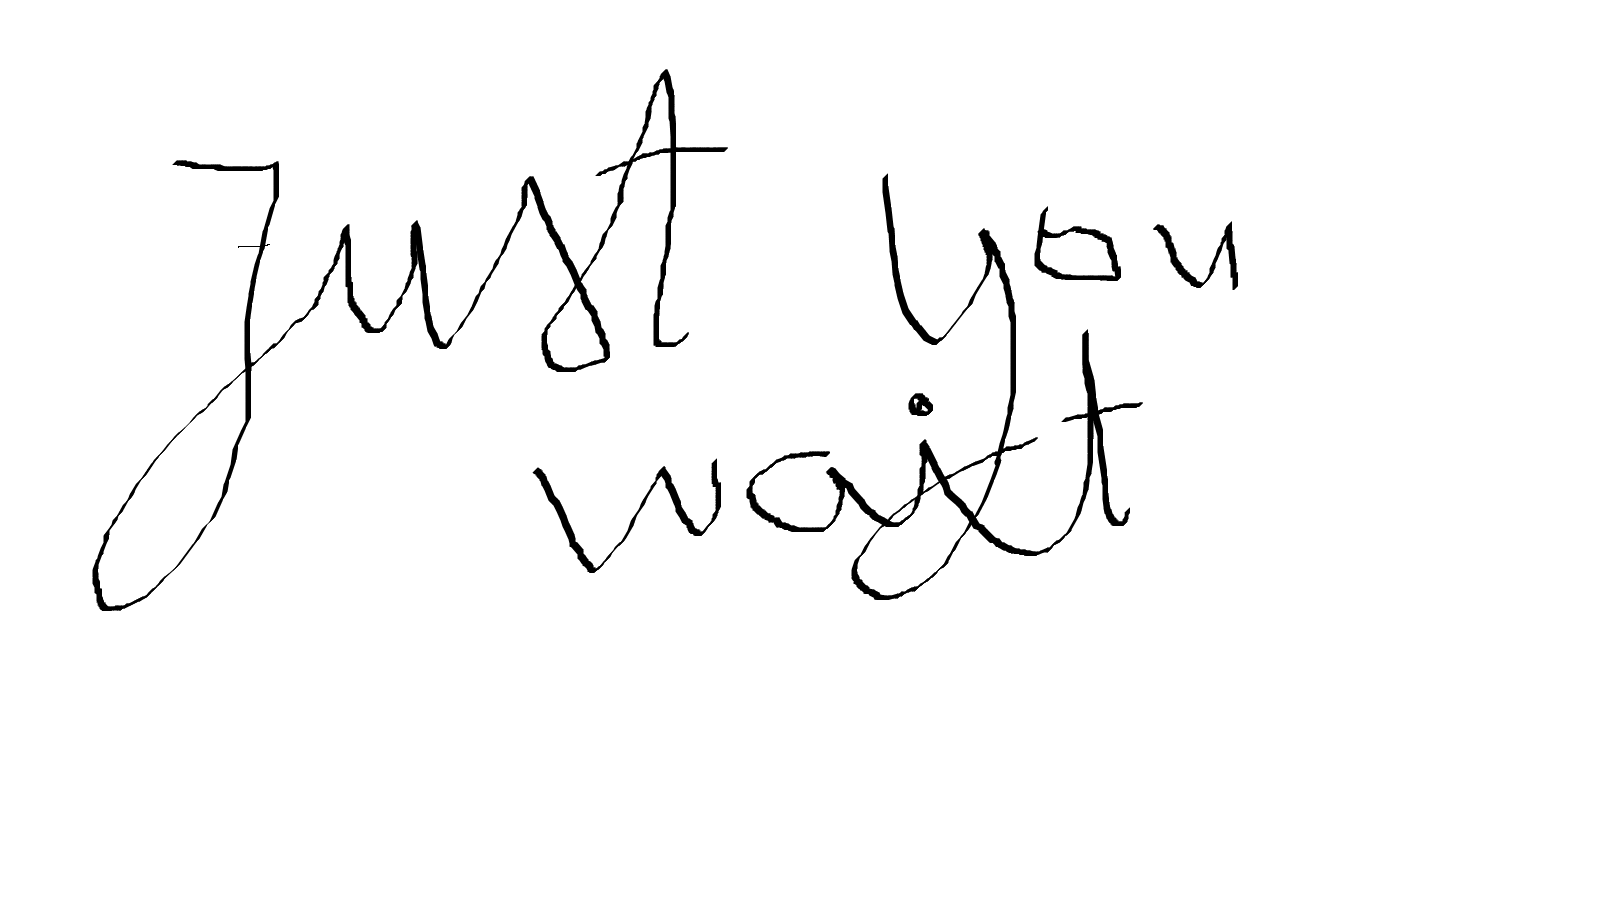 Just you
wait